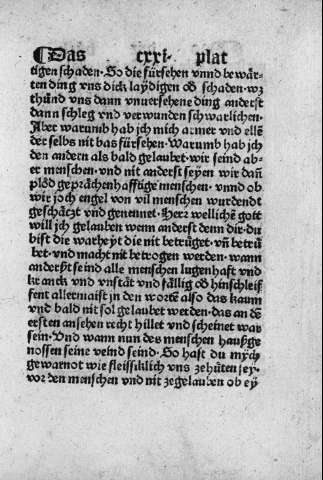 ¶Das cxxi· plat
tigen schaden· So die fürsehen vnnd bewär-
ten ding vns dick laydigen oď schaden· wz
thünd vns dann vnuersehene ding anderst
dann schleg vnd verwunden schwarlichen·
Aber warumb hab ich mich armer vnd ellē
der selbs nit bas fürsehen· Warumb hab jch
den andern als bald gelaubet· wir seind ab-
er menschen· vnd nit anderst seyen wir dañ
plöd geprächenhafftige menschen· vnnd ob
wir joch engel von vil menschen wurdendt
geschätzt vnd genennet· Herr wellichē gott
will jch gelauben wenn anderst denn dir· du
bist die warheyt die nit betrüget· vñ betrü
bet· vnd macht nit betrogen werden· wann
anderßt seind alle menschen lugenhaft vnd
kranck vnd vnstät vnd fällig oď hinschleif
fent allermaist in den wortē also das kaum
vnd bald nit sol gelaubet werden· das an dē
ersten ansehen recht hillet vnd scheinet war
sein· Vnd wann nun des menschen haußge
nossen seine veind seind· So hast du mych
gewarnot wie fleissiklich vns zehüten sey·
vor den menschen vnd nit zegelauben ob ey